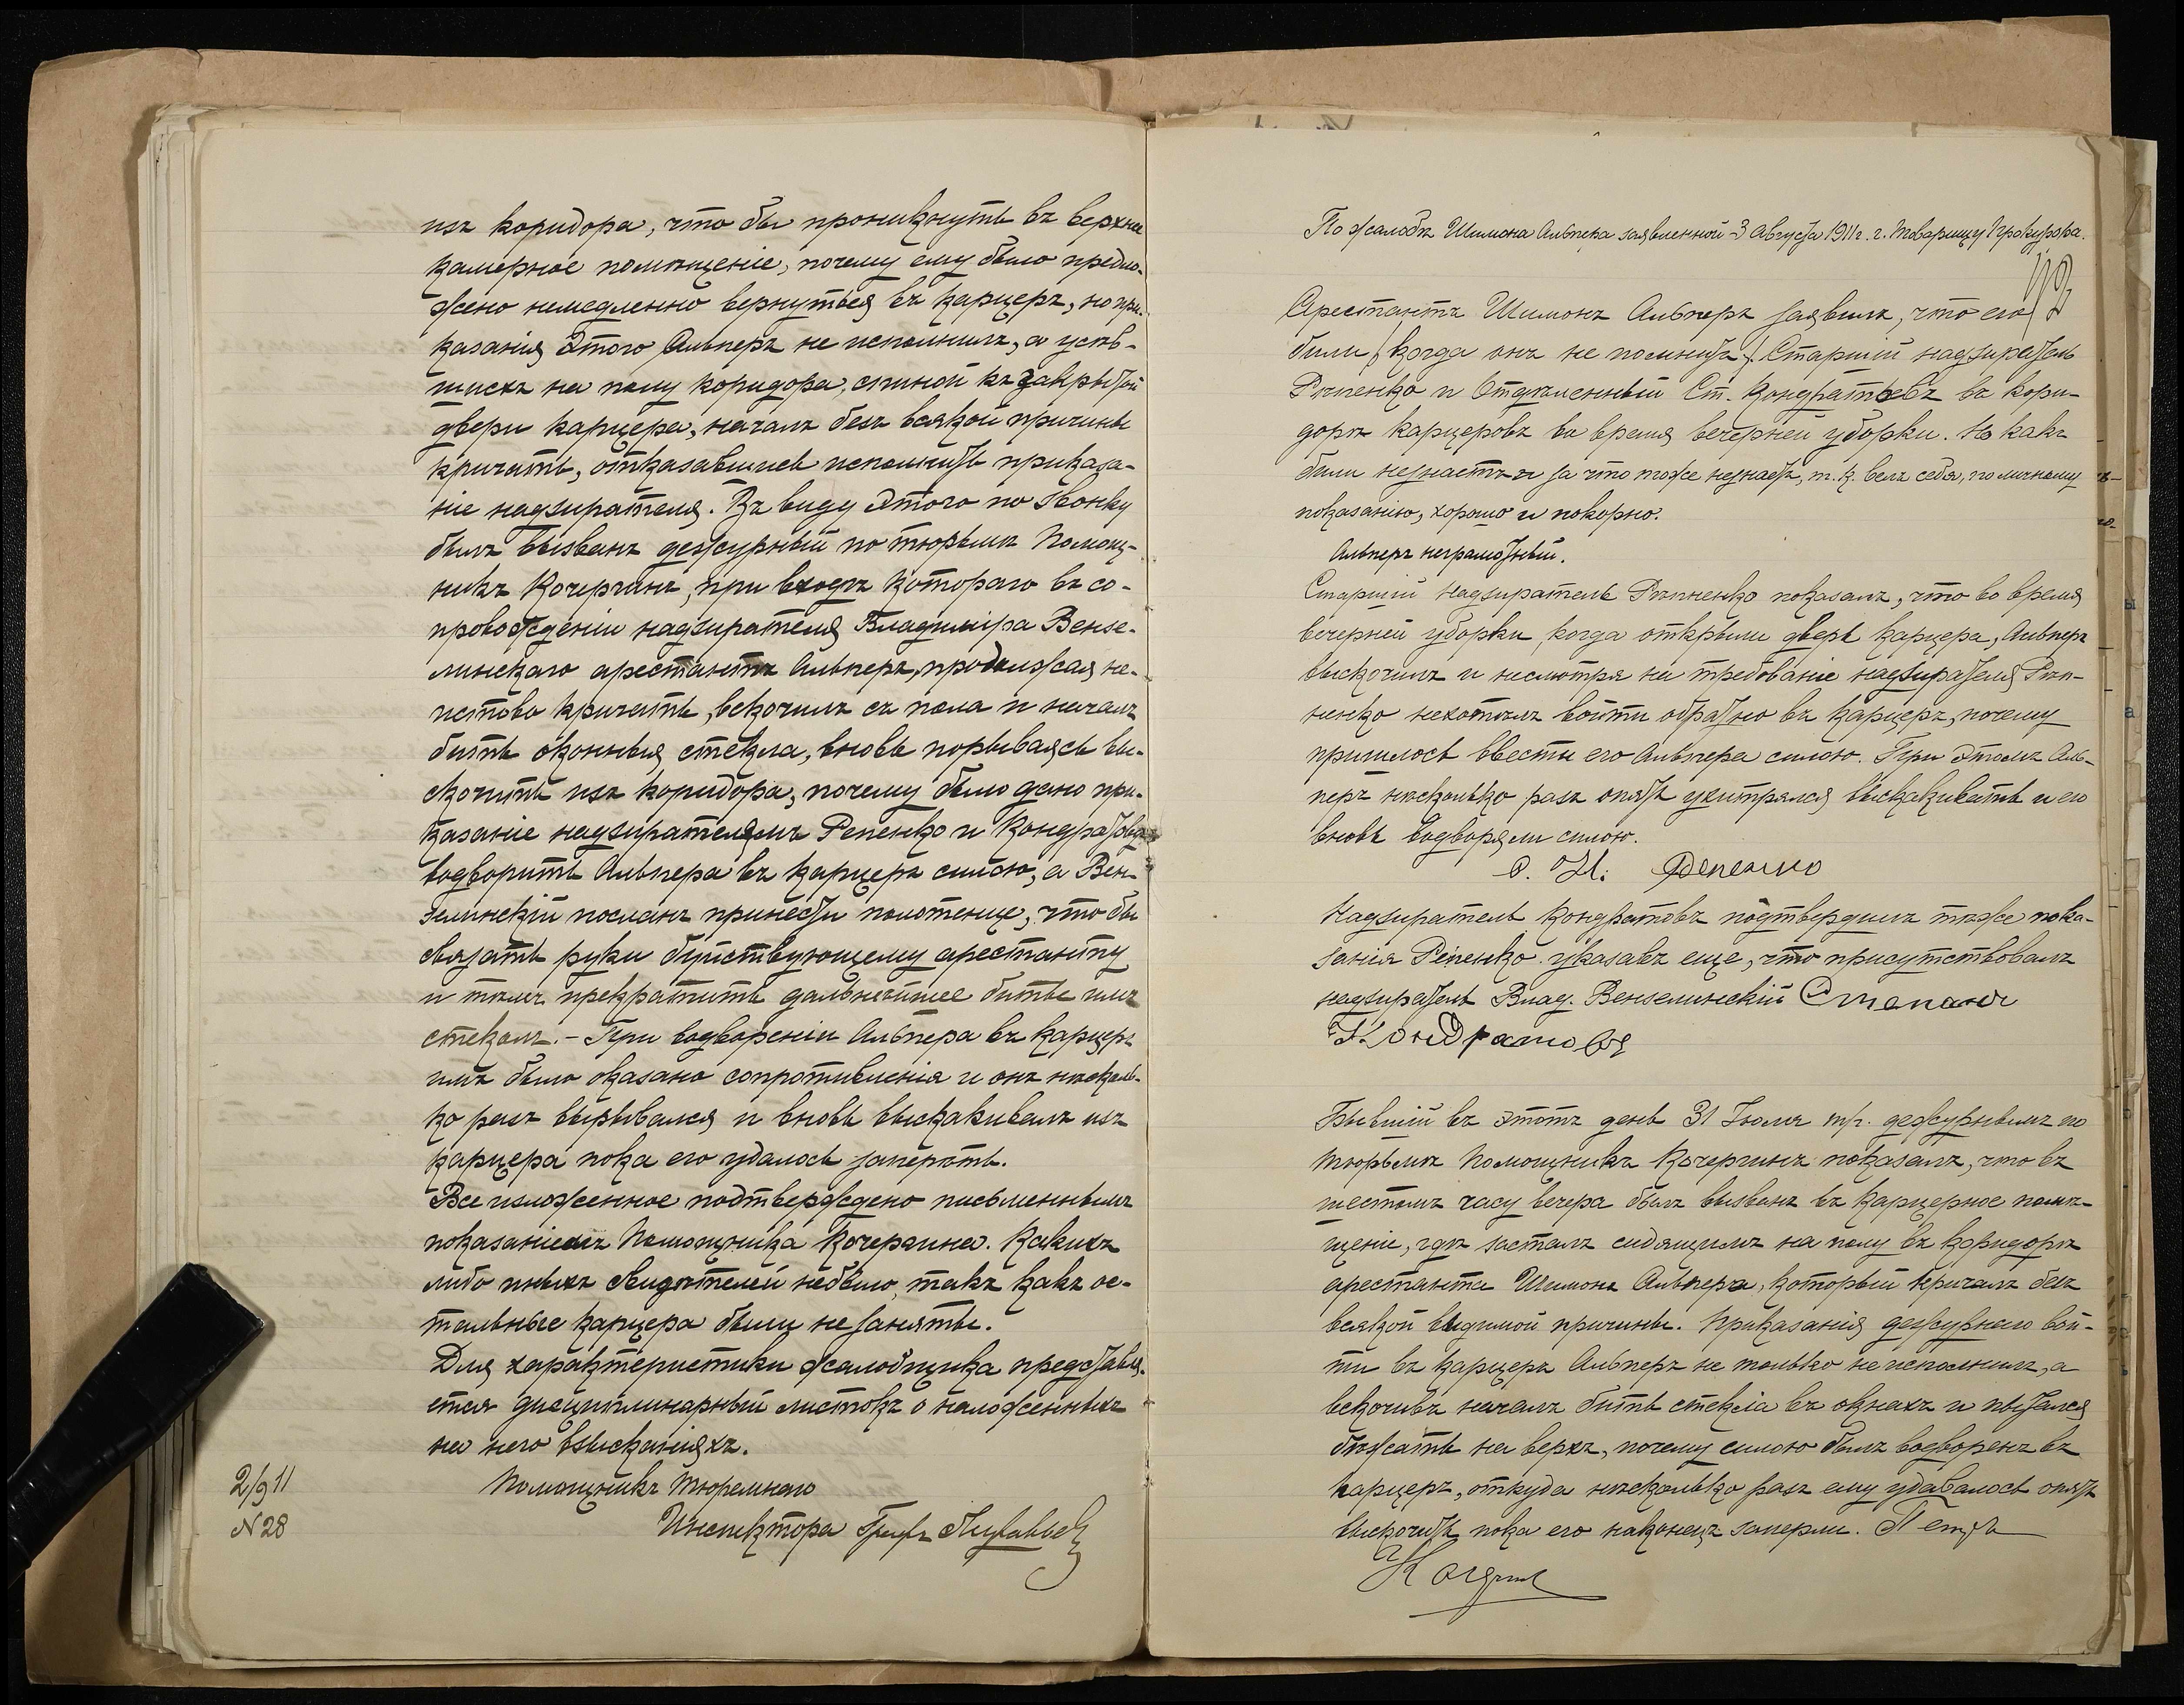 изъ коридора, что бы проникнуть въ верхнее
камерное помѣщеніе, почему ему было предло-
жено немедленно вернуться въ карцеръ, но при-
казанія этого Альперъ не исполнилъ, а усѣв-
шись на полу коридора, спиной къ закрытой
двери карцера, началъ безъ всякой причины
кричать, отказавшись исполнить приказа-
ніе надзирателя. Въ виду этого по звонку
былъ вызванъ дежурный по тюрьмѣ Помощ-
никъ Кочергинъ, при входѣ котораго въ со-
провожденіи надзирателя Владиміра Вензе-
линскаго арестантъ Альперъ, продолжая не-
истово кричать, вскочилъ съ пола и началъ
бить оконныя стекла, вновь порываясь вы-
скочить изъ коридора, почему было дано при-
казаніе надзирателямъ Репенко и Кондратову
водворить Альпера въ карцеръ силою, а Вен-
зелинскій посланъ принести полотенце, что бы
связать руки буйствующему арестанту
и тѣмъ прекратить дальнѣйшее битье имъ
стеколъ. – При водвореніи Альпера въ карцеръ
имъ было оказано сопротивленія и онъ нѣсколь-
ко разъ вырывался и вновь выскакивалъ изъ
карцера пока его удалось запереть.
Все изложенное подтверждено письменнымъ
показаніемъ Помощника Кочергина. Какихъ
либо иныхъ свидѣтелей небыло, такъ какъ ос-
тальные карцера были не заняты.
Для характеристики жалобщика представля-
ется дисциплинарный листокъ о наложенныхъ
на него взысканіяхъ.
Помощникъ Тюремнаго
Инспектора Графъ
2/9 11
N 28
По жалобѣ Шимона Альпера заявленной 3 Августа 1911 г. г. Товарищу Прокурора.
Арестантъ Шимонъ Альперъ заявилъ, что его
били (когда онъ не помнитъ) Старшій надзиратель
Рѣпенко и Отдѣленный Ст. Кондратьевъ въ кори-
дорѣ карцеровъ во время вечерней уборки. Но какъ
били незнаетъ и за что тоже незнаетъ, т. к. велъ себя, по личному
показанію, хорошо и покорно.
Альперъ неграмотный.
Старшій Надзиратель Рѣпненко показалъ, что во время
вечерней уборки, когда открыли дверь карцера, Альперъ
выскочилъ и несмотря на требованіе надзирателя Рѣп-
ненко нехотѣлъ войти обратно въ карцеръ, почему
пришлось ввести его Альпера силою. При этомъ Аль-
перъ нѣсколько разъ опять ухитрялся выскакивать и его
вновь водворяли силою.
С. Н. Репенко
Надзиратель Кондратовъ подтвердилъ тѣже пока-
занія Репенко указавъ еще, что присутствовалъ
надзиратель Влад. Вензелинскій Степанъ
Кондратовъ
Бывшій въ этотъ день 31 Іюля т/г. дежурнымъ по
тюрьмѣ Помощникъ Кочергинъ показалъ, что въ
шестомъ часу вечера былъ вызванъ въ карцерное помѣ-
щеніе, гдѣ засталъ сидящимъ на полу въ коридорѣ
арестанта Шимона Альпера, который кричалъ безъ
всякой видимой причины. Приказанія дежурнаго вой-
ти въ карцеръ Альперъ не только неисполнилъ, а
вскочивъ началъ бить стекла въ окнахъ и пытался
бѣжать на верхъ, почему силою былъ водворенъ въ
карцеръ, откуда нѣсколько разъ ему удавалось опять
выскочить пока его наконецъ заперли. Петръ